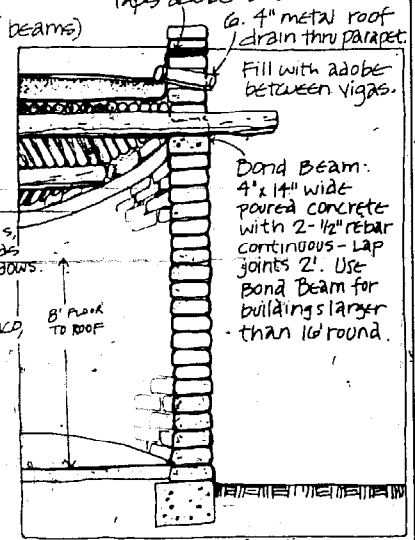 beams)
6. 4" metal roof
drain thru parapet.
Fill with adobe
between vigas.
Bond Beam:
4" x 14" wide
poured concrete
with 2-1/2" rebar
continuous - Lap
joints 2'. Use
Bond Beam for
buildings larger
than 16' round.
8' FLOOR
TO ROOF